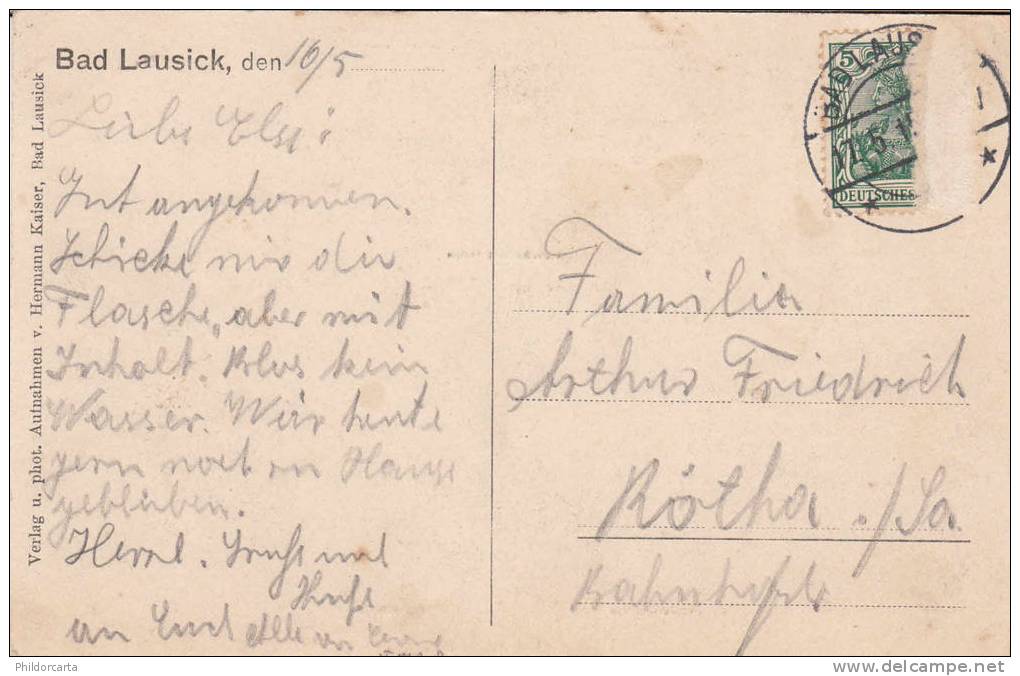 Bad Lausick, den 16/5
Liebe Else!
Gut angekommen.
Schicke mir die
Flasche, aber mit
Inhalt. Blos kein
Wasser. Wär heute
gern noch zu Hause
geblieben.
Herzl. Gruß und
Kuß
an Euch Alle von
Verlag u. phot. Aufnahmen v. Hermann Kaiser, Bad Lausick
5
DEUTSCHES
BAD LAUS
17.5.1
Familie
Arthur Friedrich
Rötha i/Sa
Bahnhofstr
Phildorcarta
www.delcampe.net